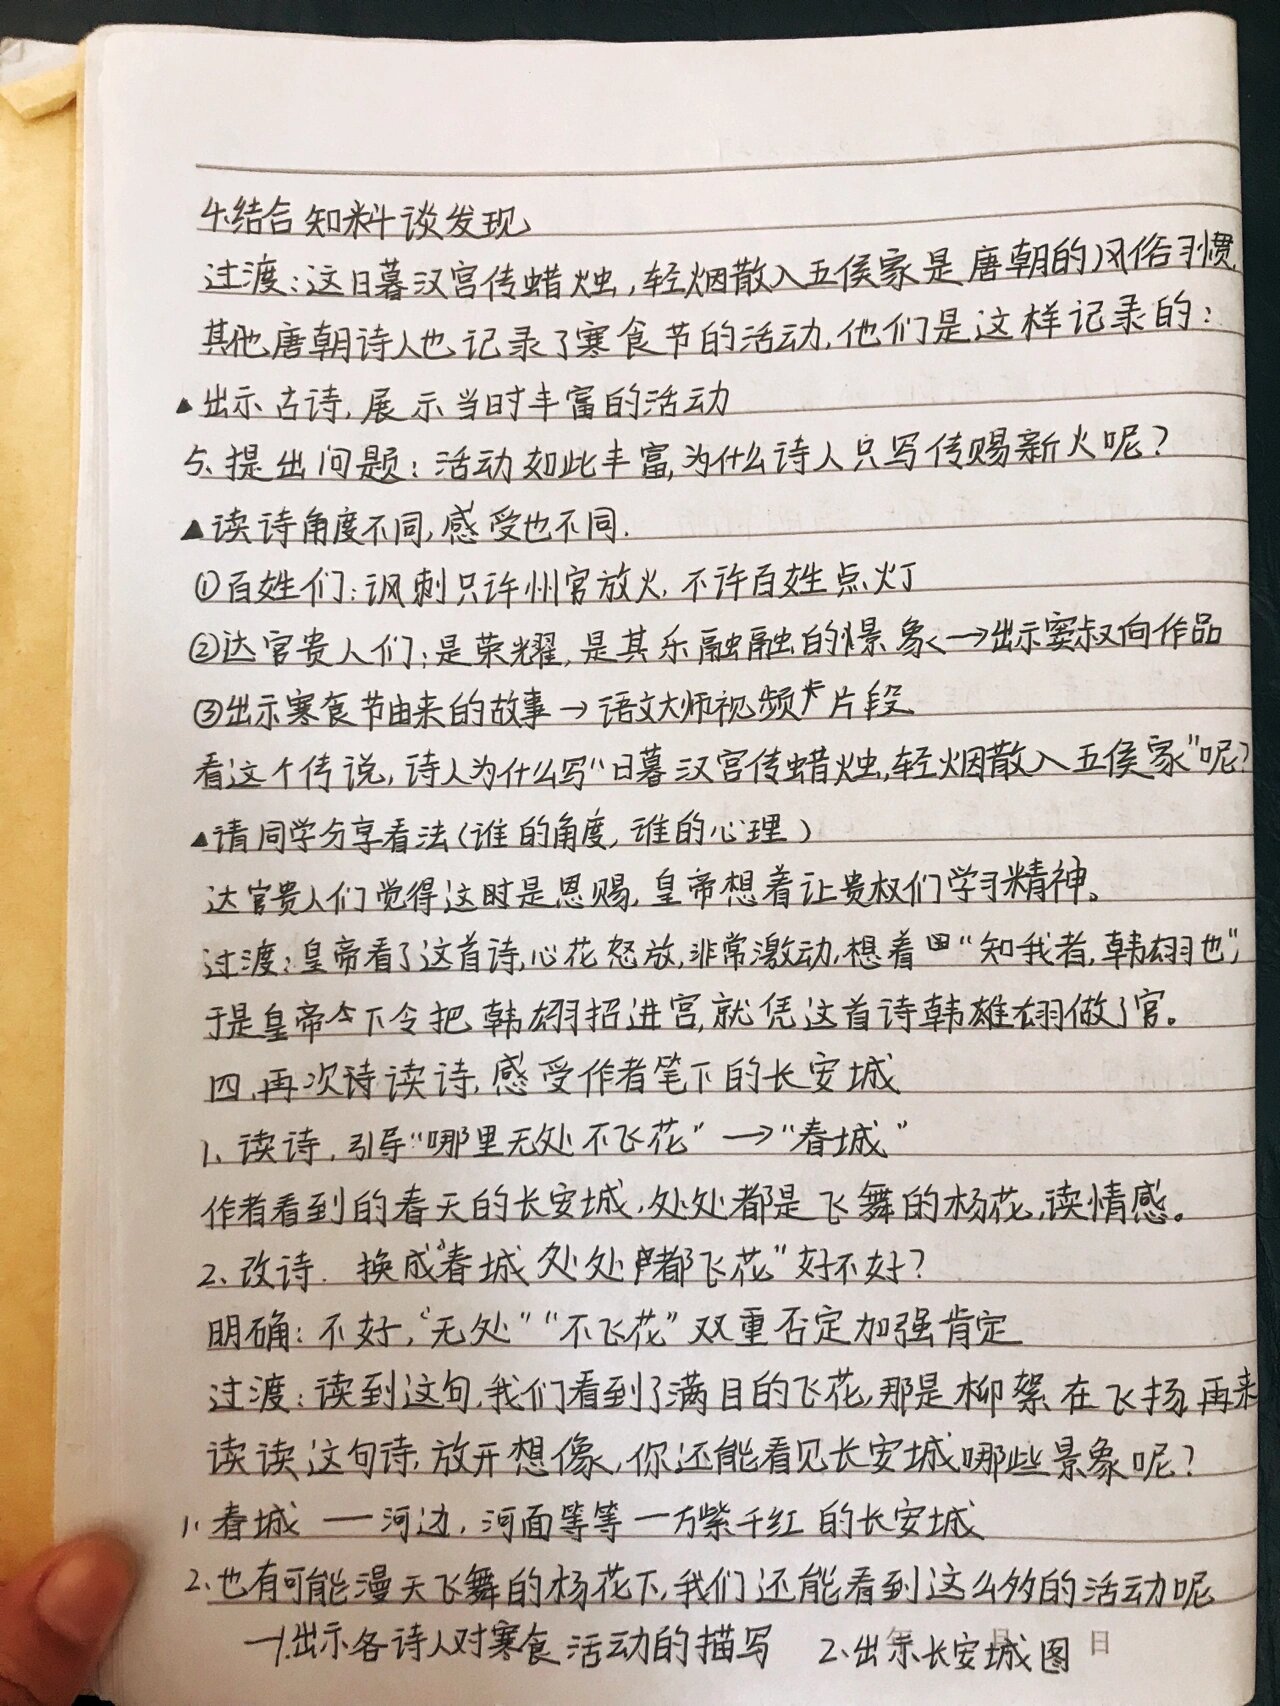 4.结合知料谈发现
过渡:这日暮汉宫传蜡烛,轻烟散入五侯家是唐朝的风俗习惯,
其他唐朝诗人也记录了寒食节的活动,他们是这样记录的:
▲出示古诗,展示当时丰富的活动
5.提出问题:活动如此丰富,为什么诗人只写传赐新火呢?
▲读诗角度不同,感受也不同.
①百姓们:讽刺只许州官放火,不许百姓点灯
②达官贵人们:是荣耀,是其乐融融的情景象<—→出示窦叔向作品
③出示寒食节由来的故事→语文大师视频片段
看这个传说,诗人为什么写“日暮汉宫传蜡烛,轻烟散入五侯家”呢?
▲请同学分享看法(谁的角度,谁的心理)
达官贵人们觉得这时是恩赐,皇帝想着让贵权们学习精神。
过渡:皇帝看了这首诗,心花怒放,非常激动,想着“知我者,韩翃也”,
于是皇帝下令把韩翃招进宫,就凭这首诗韩雄翃做了官。
四.再次读诗,感受作者笔下的长安城
1.读诗,引导“哪里无处不飞花”—→“春城”
作者看到的春天的长安城,处处都是飞舞的杨花,读情感。
2.改诗.换成“春城处处都飞花”好不好?
明确:不好,“无处”“不飞花”双重否定加强肯定
过渡:读到这句,我们看到了满目的飞花,那是柳絮在飞扬,再来
读读这句诗,放开想像,你还能看见长安城哪些景象呢?
1.春城—河边,河面等等—万紫千红的长安城
2.也有可能漫天飞舞的杨花下,我们还能看到这么多的活动呢
—1.出示各诗人对寒食活动的描写 2.出示长安城图
年 月 日